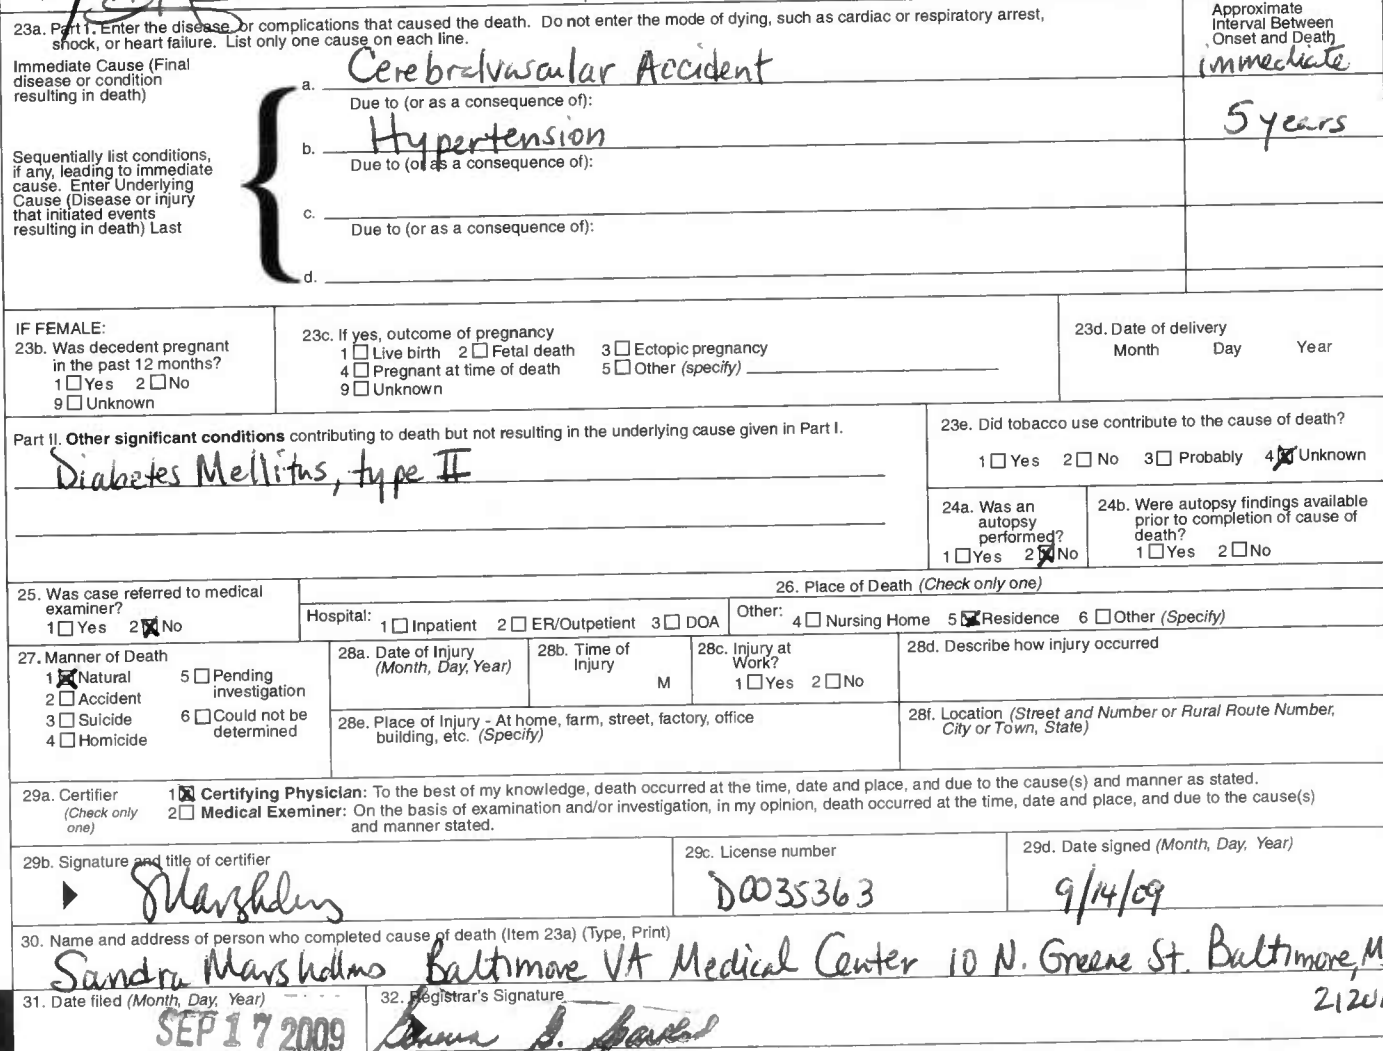 23a. Part I. Enter the disease, or complications that caused the death. Do not enter the mode of dying, such as cardiac or respiratory arrest,
shock, or heart failure. List only one cause on each line.
Approximate
Interval Between
Onset and Death
Immediate Cause (Final
disease or condition
resulting in death)
a. Cerebralvascular Accident
immediate
Due to (or as a consequence of):
b. Hypertension
5 years
Due to (or as a consequence of):
Sequentially list conditions,
if any, leading to immediate
cause. Enter Underlying
Cause (Disease or injury
that initiated events
resulting in death) Last
c.
Due to (or as a consequence of):
d.
IF FEMALE:
23b. Was decedent pregnant
in the past 12 months?
1 ☐ Yes 2 ☐ No
9 ☐ Unknown
23c. If yes, outcome of pregnancy
1 ☐ Live birth 2 ☐ Fetal death 3 ☐ Ectopic pregnancy
4 ☐ Pregnant at time of death 5 ☐ Other (specify)
9 ☐ Unknown
23d. Date of delivery
Month Day Year
Part II. Other significant conditions contributing to death but not resulting in the underlying cause given in Part I.
Diabetes Mellitus, type II
23e. Did tobacco use contribute to the cause of death?
1 ☐ Yes 2 ☐ No 3 ☐ Probably 4 ☒ Unknown
24a. Was an
autopsy
performed?
1 ☐ Yes 2 ☒ No
24b. Were autopsy findings available
prior to completion of cause of
death?
1 ☐ Yes 2 ☐ No
25. Was case referred to medical
examiner?
1 ☐ Yes 2 ☒ No
26. Place of Death (Check only one)
Hospital: 1 ☐ Inpatient 2 ☐ ER/Outpetient 3 ☐ DOA Other: 4 ☐ Nursing Home 5 ☒ Residence 6 ☐ Other (Specify)
27. Manner of Death
1 ☒ Natural 5 ☐ Pending
investigation
2 ☐ Accident
3 ☐ Suicide 6 ☐ Could not be
determined
4 ☐ Homicide
28a. Date of Injury
(Month, Day, Year)
28b. Time of
Injury
M
28c. Injury at
Work?
1 ☐ Yes 2 ☐ No
28d. Describe how injury occurred
28e. Place of Injury - At home, farm, street, factory, office
building, etc. (Specify)
28f. Location (Street and Number or Rural Route Number,
City or Town, State)
29a. Certifier
(Check only
one)
1 ☒ Certifying Physician: To the best of my knowledge, death occurred at the time, date and place, and due to the cause(s) and manner as stated.
2 ☐ Medical Examiner: On the basis of examination and/or investigation, in my opinion, death occurred at the time, date and place, and due to the cause(s)
and manner stated.
29b. Signature and title of certifier
29c. License number
D0035363
29d. Date signed (Month, Day, Year)
9/14/09
30. Name and address of person who completed cause of death (Item 23a) (Type, Print)
Sandra Baltimore VA Medical Center 10 N. Greene St. Baltimore, M
31. Date filed (Month, Day, Year)
SEP 17 2009
32. Registrar's Signature